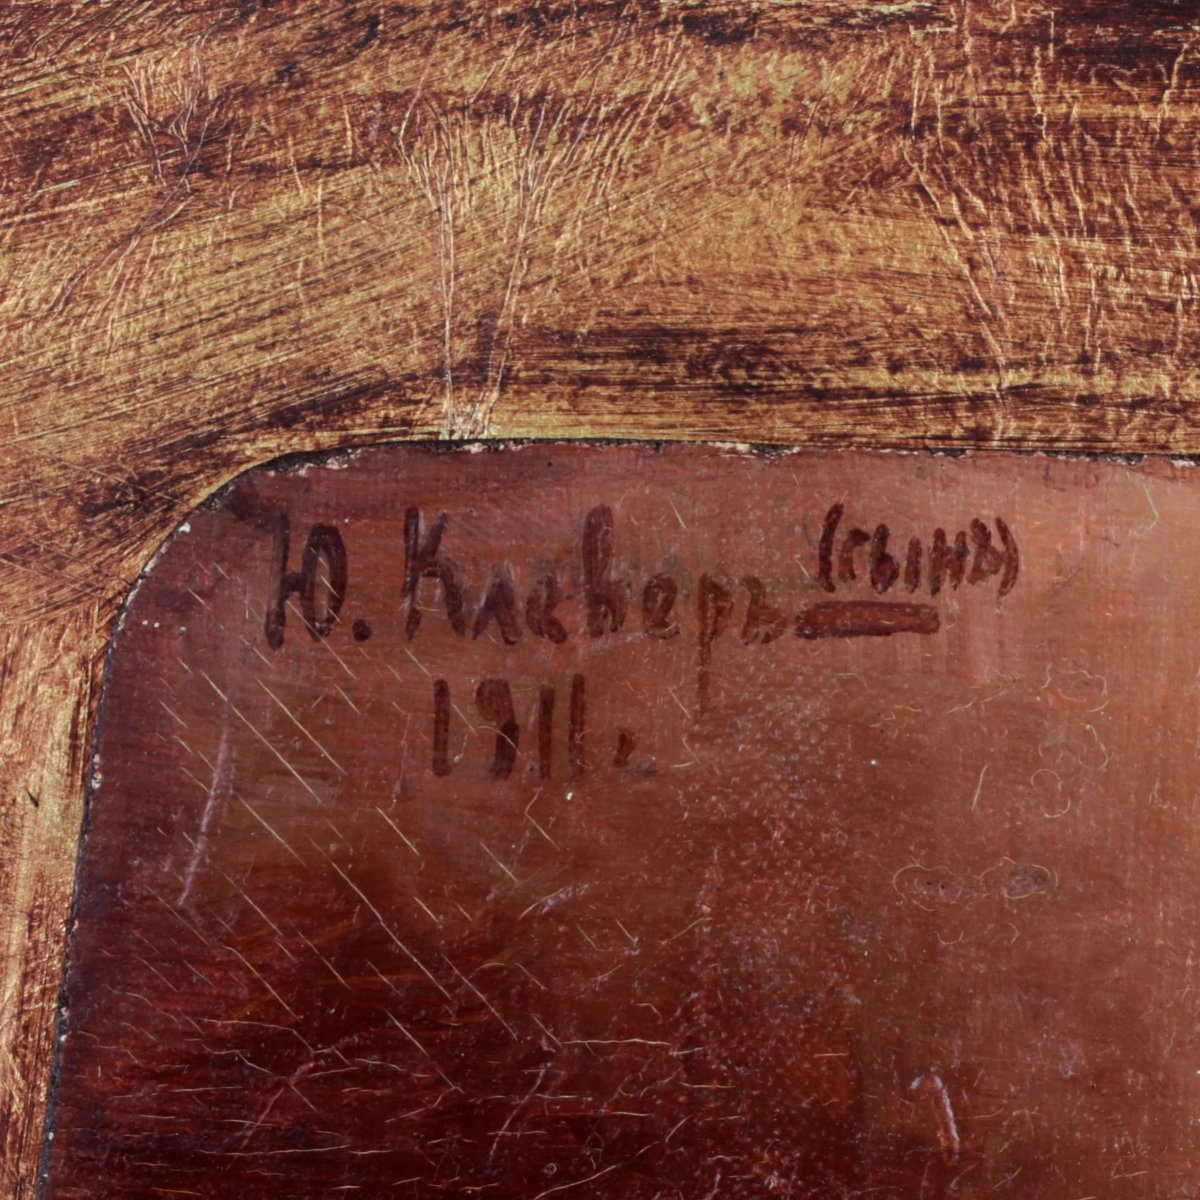 Ю. Клеверъ (сынъ)
1911 г.